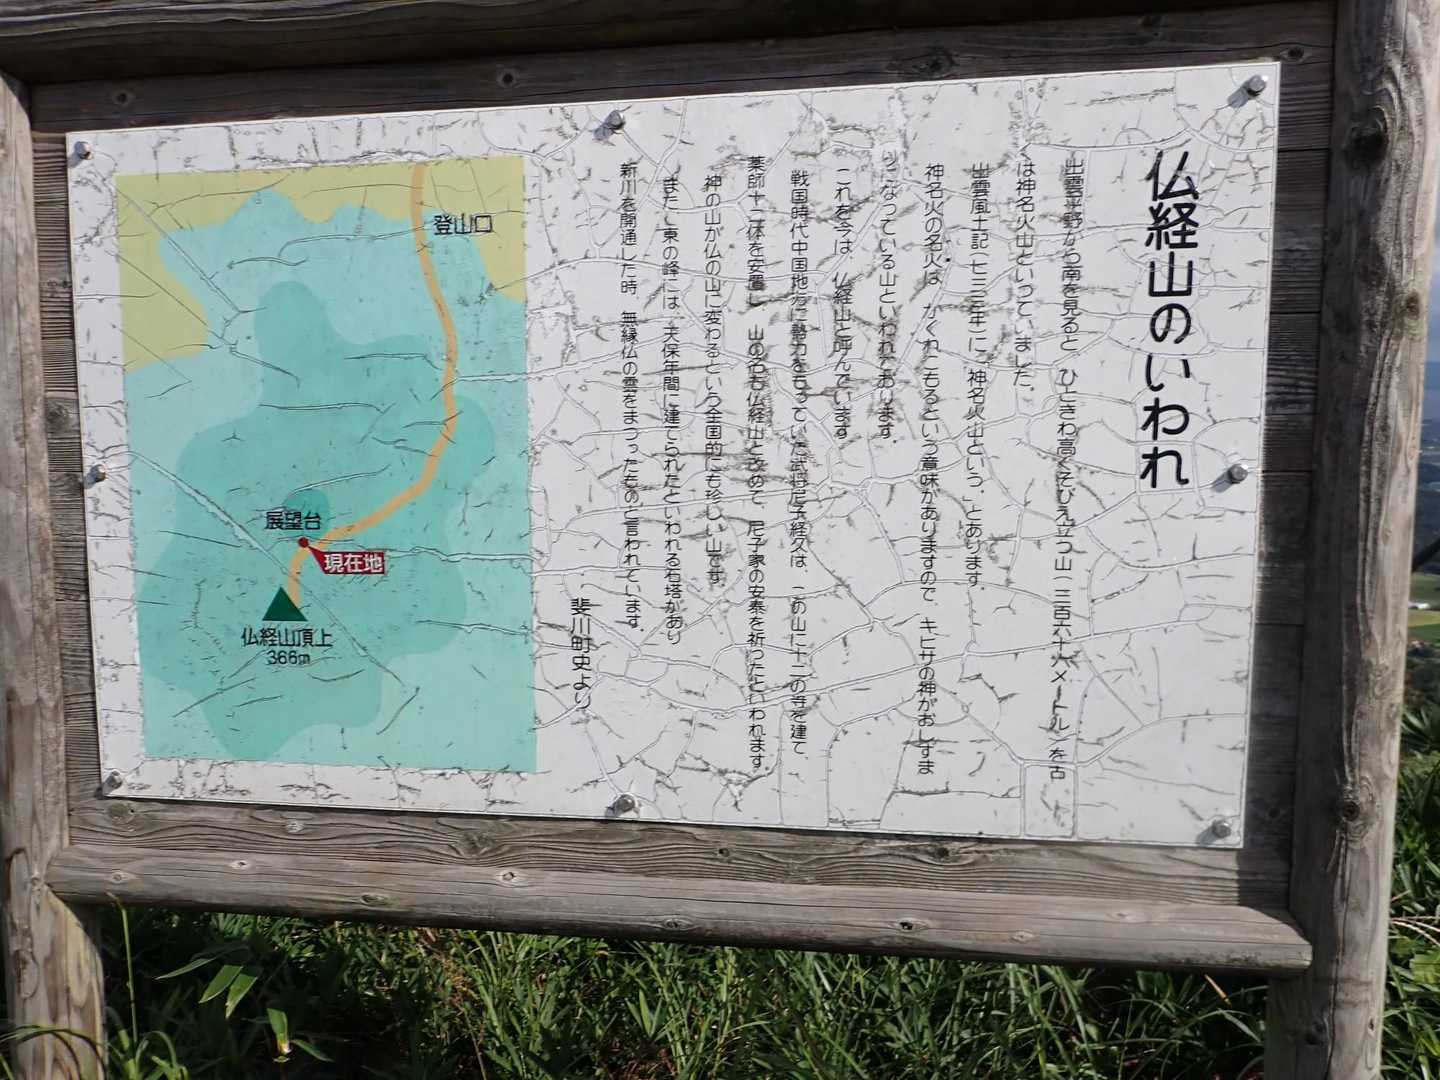 仏経山のいわれ
出雲平野から南を見ると、ひときわ高くそびえ立つ山(三百六十六メートル)を古
は神名火山といっていました。
出雲風土記(七三三年)に「神名火山という。」とあります。
神名火の名火は、かくれこもるという意味がありますので、キヒサの神がおしずま
りになっている山といわれております。
これを今は、仏経山と呼んでいます。
戦国時代中国地方に勢力をもっていた武将尼子経久は、この山に十二の寺を建て、
薬師十二体を安置し、山の名も仏経山と改めて、尼子家の安泰を祈ったといわれます。
神の山が仏の山に変わるという全国的にも珍しい山です。
また、東の峰には、天保年間に建てられたといわれる石塔があり
新川を開通した時、無縁仏の霊をまつったものと言われています。
斐川町史より
登山口
展望台
現在地
仏経山頂上
366m